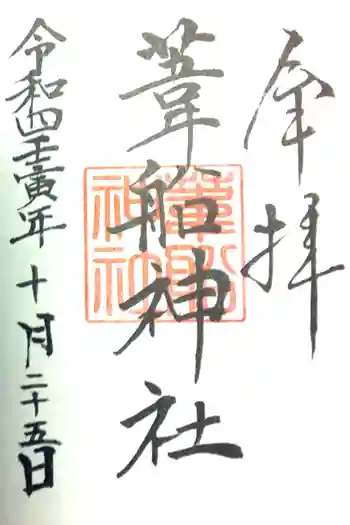 奉拝
葦船神社
葦船神社
令和四壬寅年十月二十五日